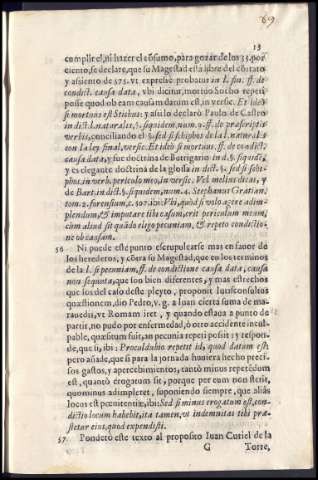 69
13
complir el, ni hazer el cõsumo, para gozar de los 35. por
ciento, se declare, que su Magestad esta libre del cõtrato
y assiento de 575. vt expresse probatur in l. fin. ff. de
condict. causa data, vbi dicitur, mortuo Sticho repeti
posse quod ob eam causam datum est, in versic. Et ideo
si mortuus est Stichus: y assi lo declaro Paulo de Castro
in dict. l. naturalis, §. siquidem, num. 9. ff. de præscriptis
verbis, conciliando el §. sed si scyphos de la l. naturalis
con la ley final, versic. Et ideò si mortuus ff. de condict.
causa data, y fue doctrina de Botrigario in d. §. siquidē,
y es elegante doctrina de la glossa in dict. §. sed si scy-
phos, in verb. periculo meo, in versic. Vel melius dicas, y
de Bart. in dict. §. siquidem, num. 4. Stephanus Gratian.
tom. 2. forensium, c. 307. ibi: Vbi, quòd si volo agere adim-
plendum, & imputare tibi casum, erit periculum meum,
cùm aliud sit quãdo ego pecuniam, & repeto condictio-
ne ob causam.
56. Ni puede este punto escrupulearse mas en fauor de
los herederos, y cõtra su Magestad, que en los terminos
de la l. si pecuniam, ff. de condictione causa data, causa
non sequuta, que son bien diferentes, y mas estrechos
que los del caso deste pleyto, propouit Iurisconsultus
quæstionem, dio Pedro, v. g. a Iuan cierta suma de ma-
rauedis, vt Romam iret, y quando estaua a punto de
partir, no pudo por enfermedad, ò otro accidente incul-
pable, quæsitum fuit, an pecunia repeti possit: y respon-
de, que si, ibi: Procul dubio repetet id, quod datum est
pero añade, que si para la jornada huuiera hecho preci-
sos gastos, y apercebimientos, tantò minus repetēdum
est, quantò erogatum sit, porque per eum non stetit,
quominus adimpleret, suponiendo siempre, que aliàs
locus est pœnitentiæ, ibi: Sed si minus erogatum est, con-
dictio locum habebit, ita tamen, vt indemnitas tibi præ-
stetur eius, quod expendisti.
57. Ponderò este texto al proposito Iuan Gutiel de la
G Torre,